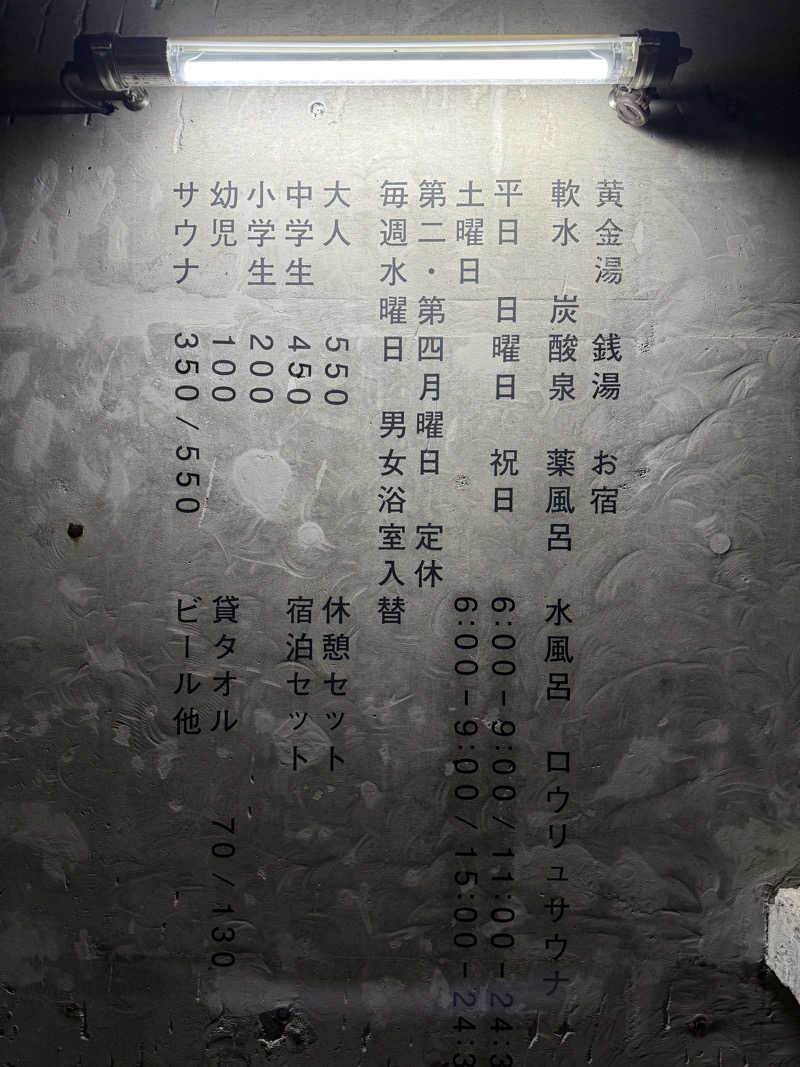 黄金湯 銭湯 お宿
軟水 炭酸泉 薬風呂 水風呂 ロウリュサウナ
平日 日曜日 祝日 6:00-9:00/11:00-24:3
土曜日 6:00-9:00/15:00-24:3
第二・第四月曜日 定休
毎週水曜日 男女浴室入替
大人 550 休憩セット
中学生 450 宿泊セット
小学生 200
幼児 100 貸タオル 70/130
サウナ 350/550 ビール他